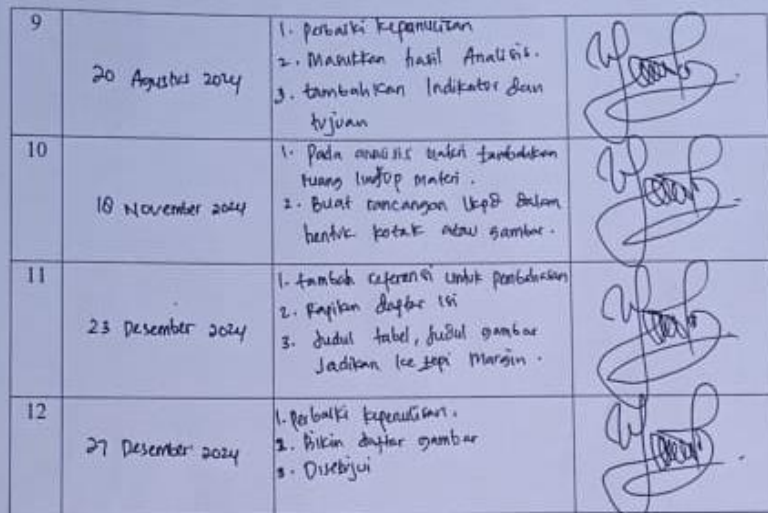 9
20 Agustus 2024
1. Perbaiki kepenulisan
2. Masukkan hasil Analisis.
3. tambahkan Indikator dan
tujuan
10
18 November 2024
1. Pada analisis materi tambahkan
ruang lingkup materi.
2. Buat rancangan LKPD dalam
bentuk kotak atau gambar.
11
23 Desember 2024
1. tambah referensi untuk pembahasan
2. Rapikan daftar isi
3. Judul tabel, judul gambar
Jadikan ke tepi Margin.
12
27 Desember 2024
1. Perbaiki kepenulisan.
2. Bikin daftar gambar
3. Disetujui